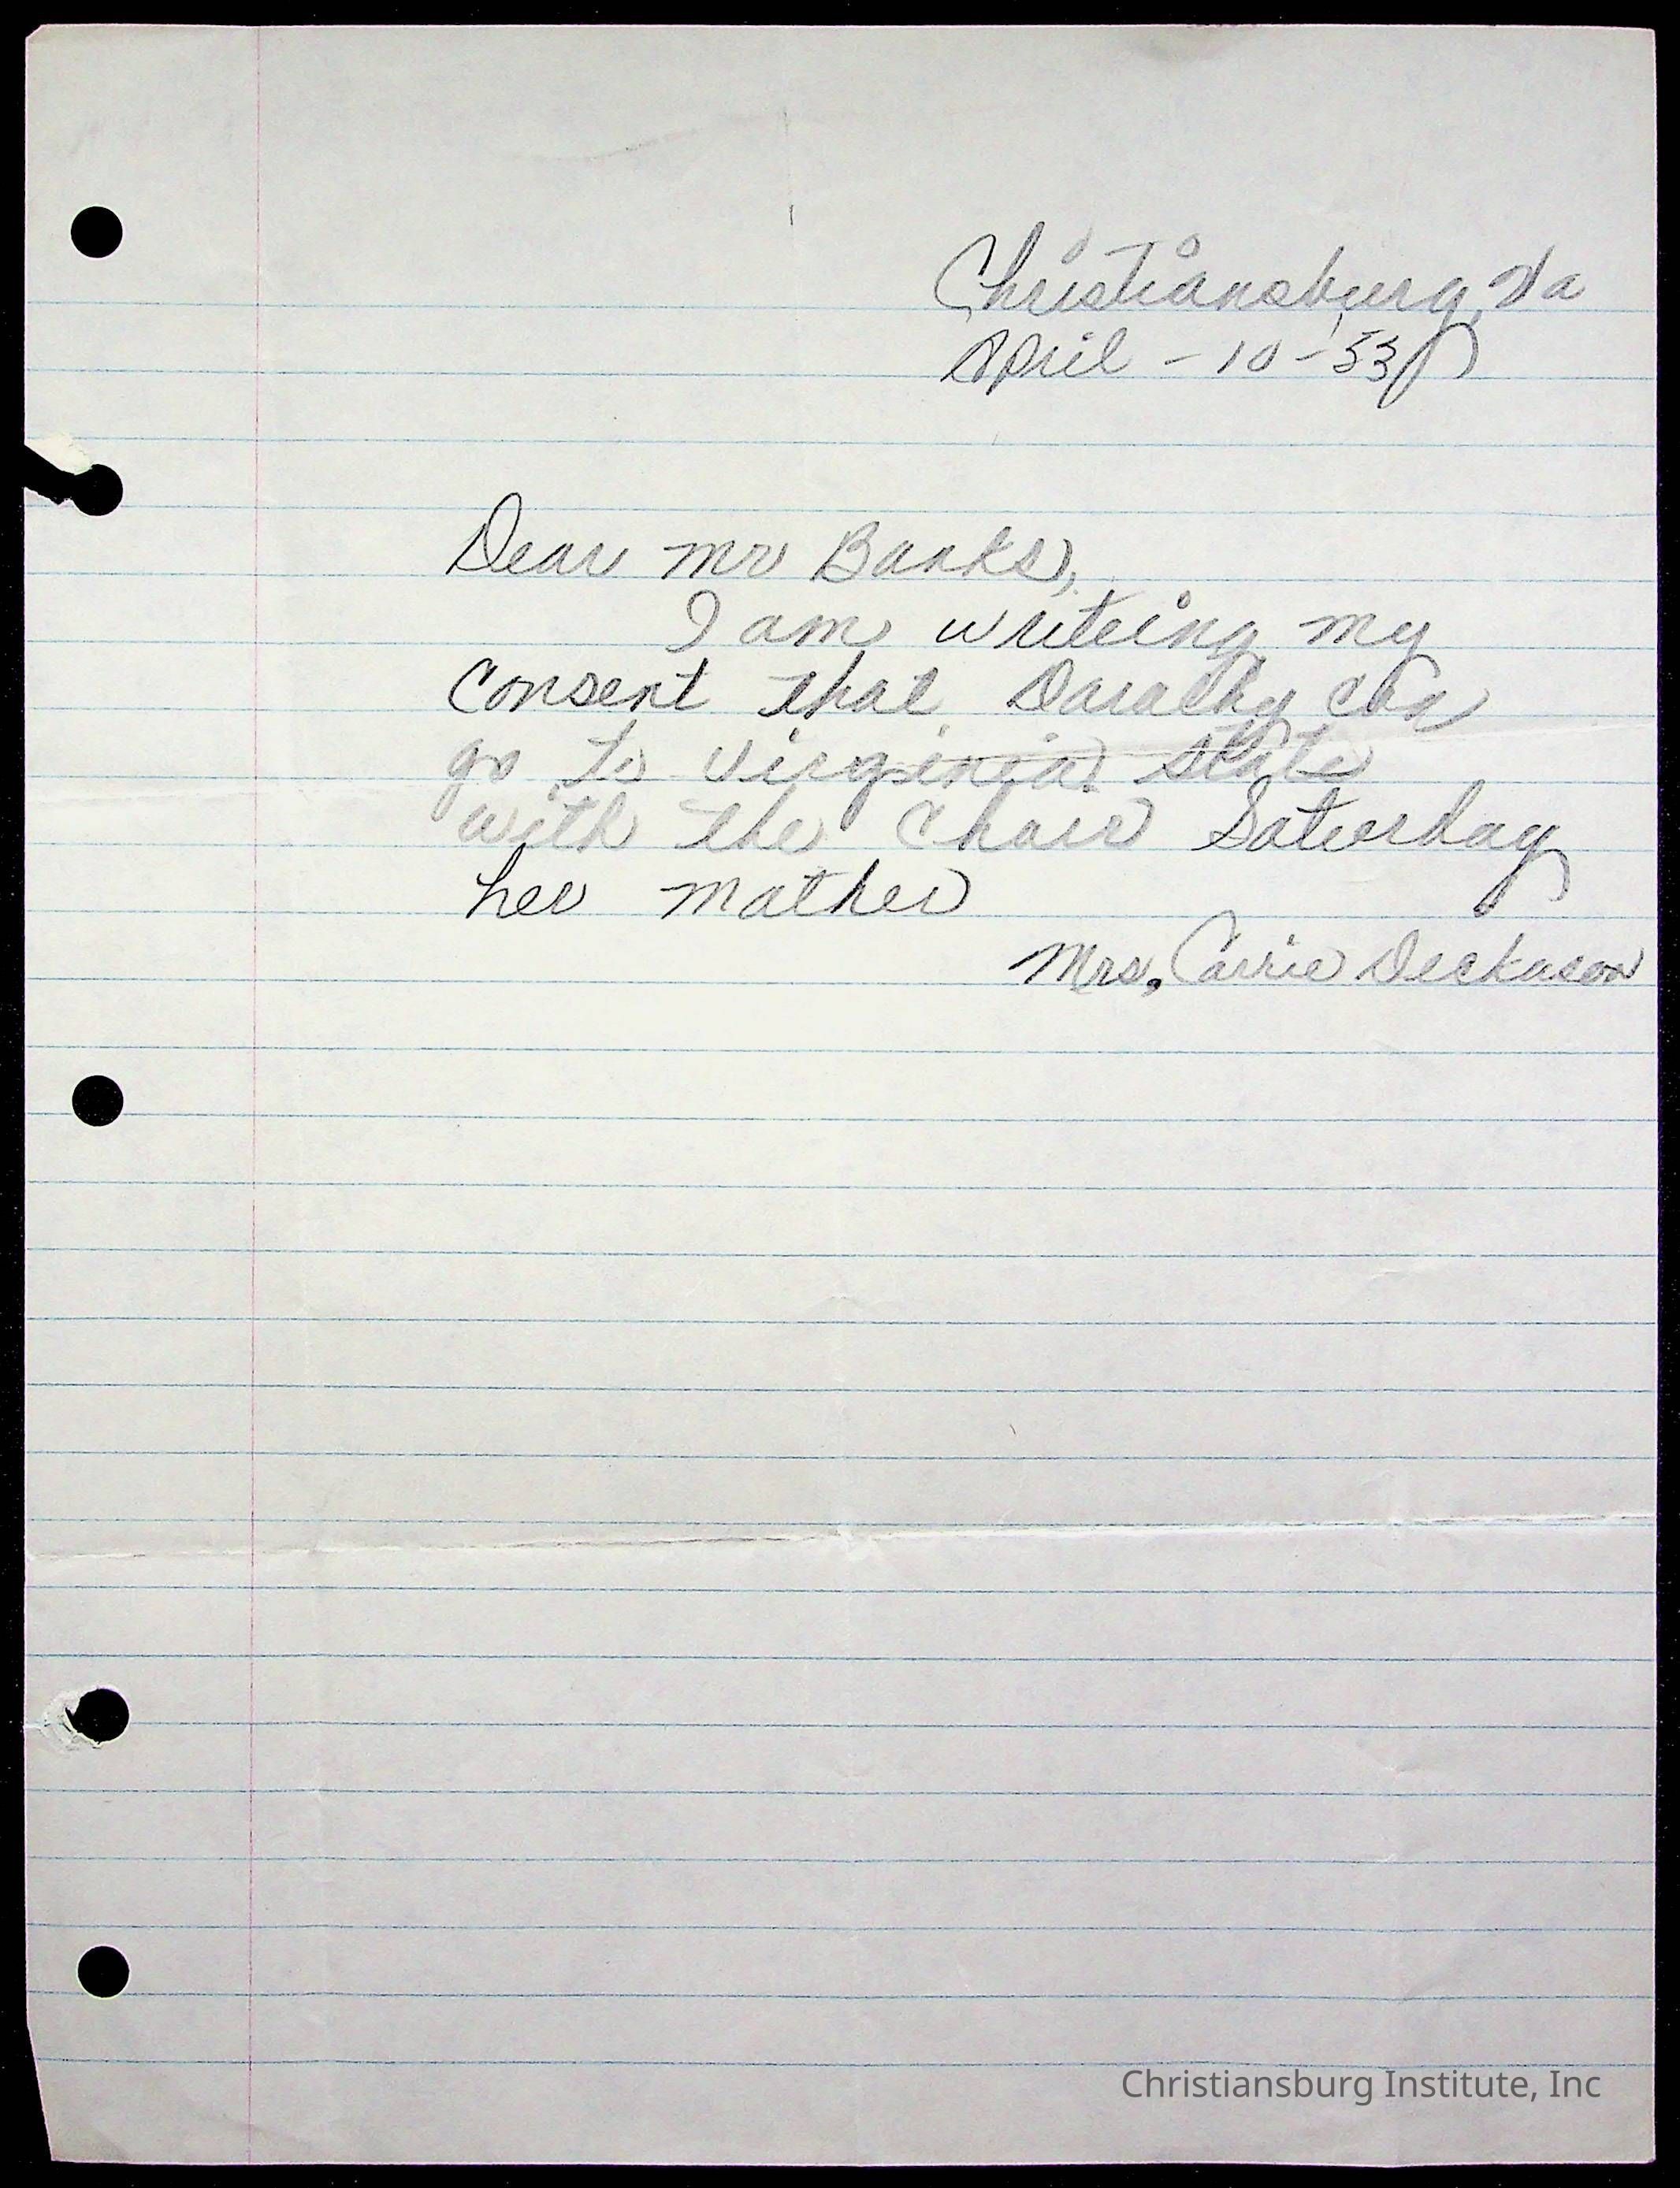 Christiansburg, Va
April - 10 - '53
Dear Mr Banks,
I am writeing my
Consent that Dorathy can
go to Virginia State
with the Choir Saturday
her mother
Mrs. Carrie Deckason
Christiansburg Institute, Inc